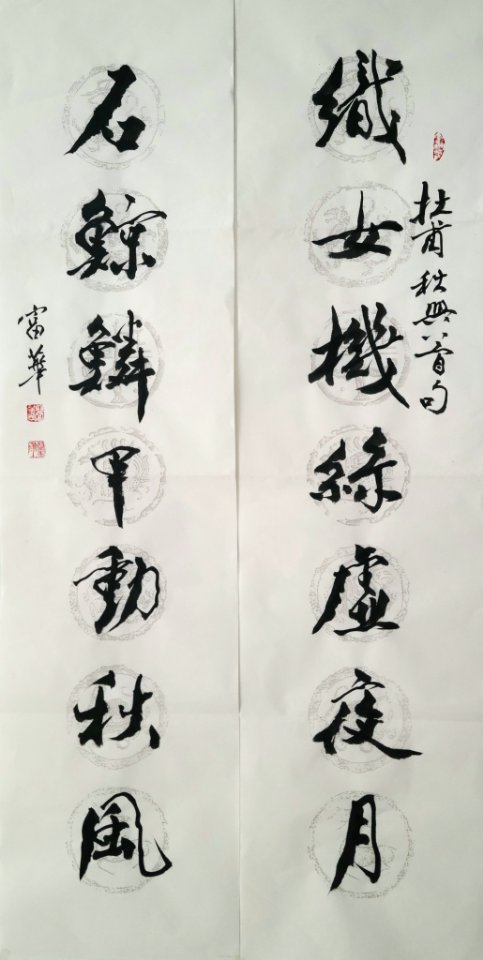 杜甫秋興八首句
織女機絲虛夜月
石鯨鱗甲動秋風
富華